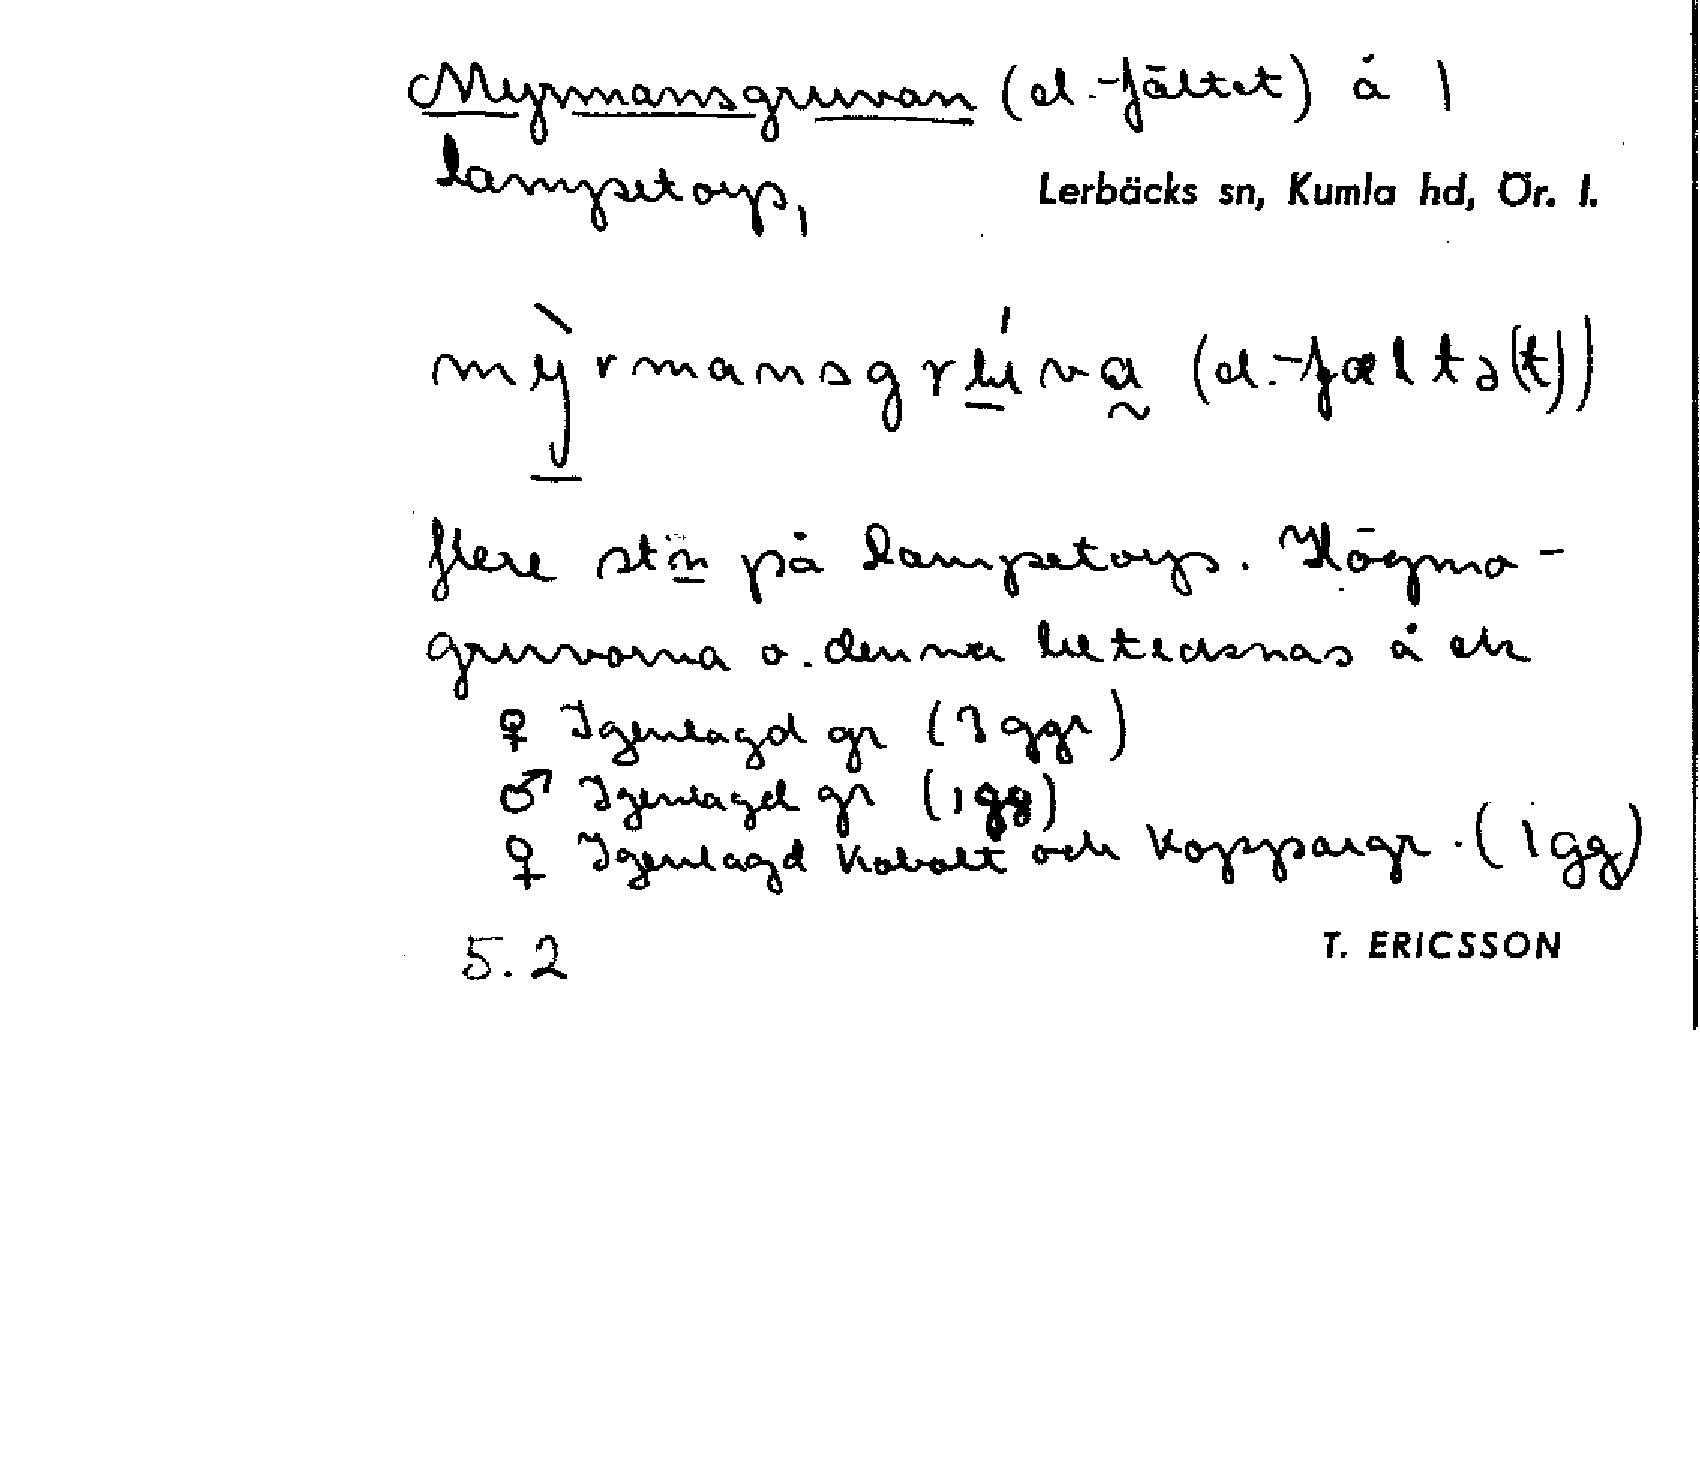 Myrmansgruvan (el. -fältet) å |
Lampetorp, Lerbäcks sn, Kumla hd, Ör. l.
mỳrmansgrúva (el. -fæltə(t))
flere st på Lampetorp. Högmo-
gruvorna o. denna betecknas å ek
♀ Igenlagd gr (3 ggr)
♂ Igenlagd gr (1 gg)
♀ Igenlagd Kobolt och Koppargr. (1 gg)
5.2 T. ERICSSON